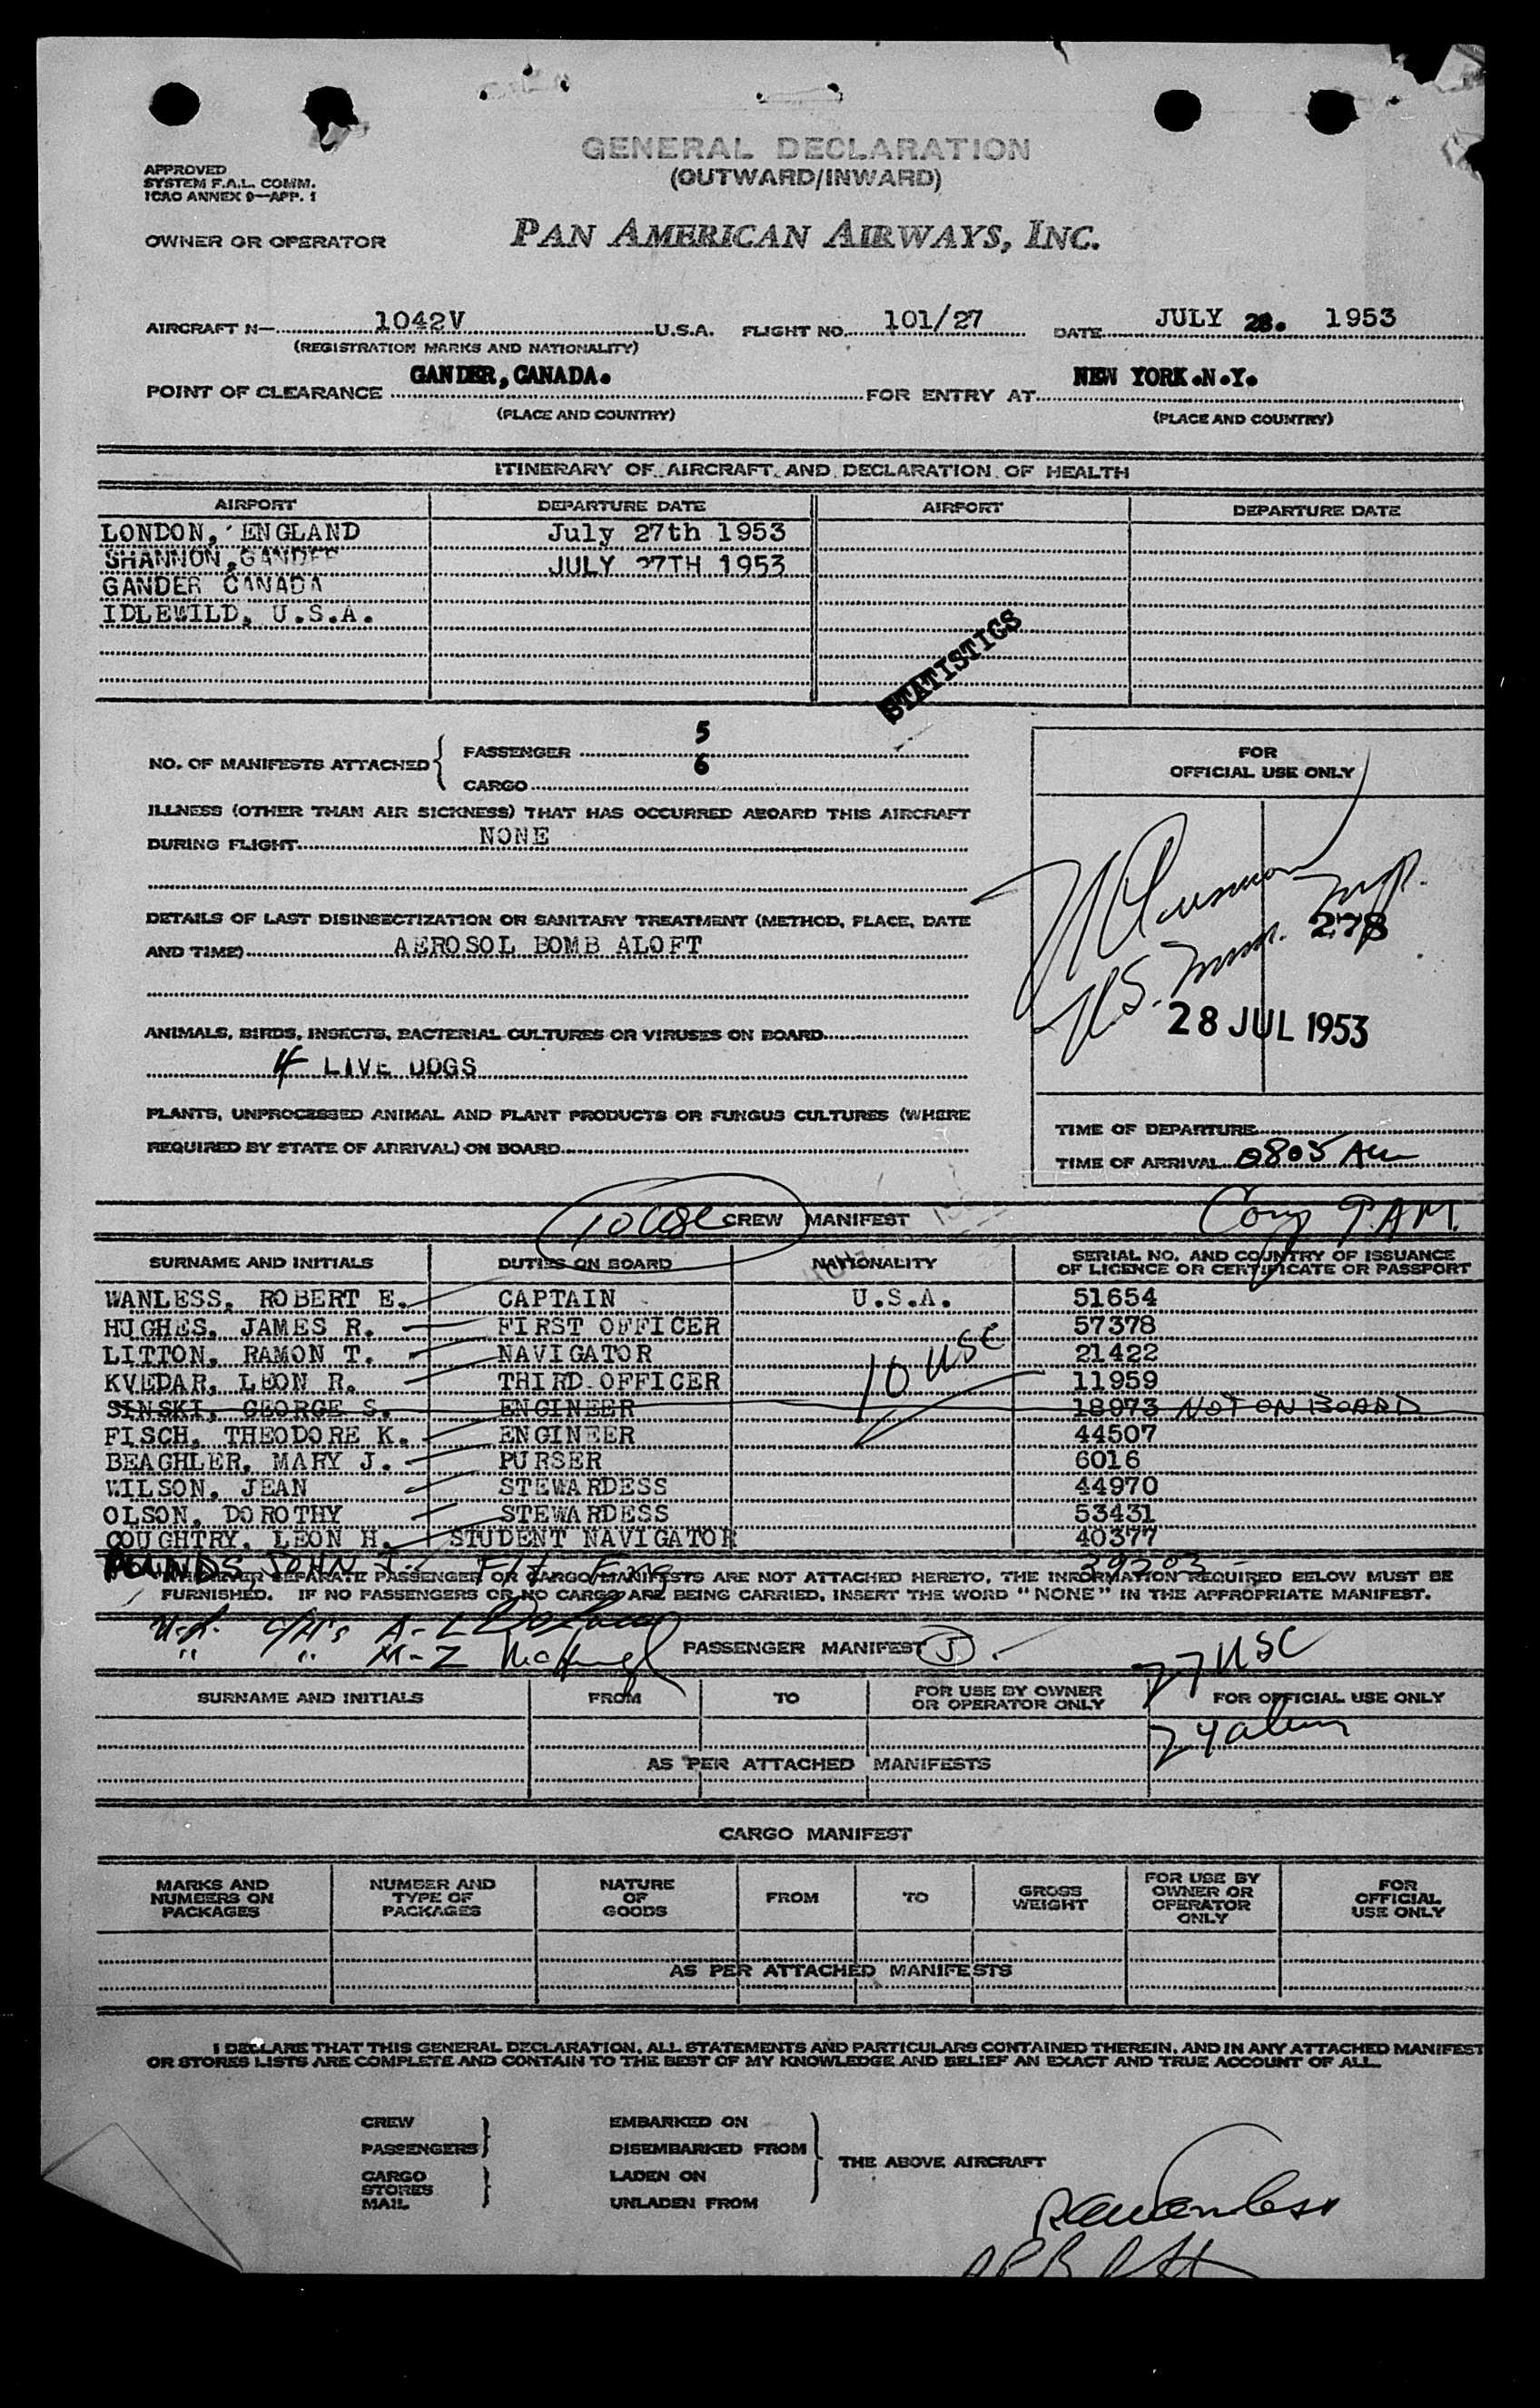 GENERAL DECLARATION
(OUTWARD/INWARD)
APPROVED
SYSTEM F.A.L. COMM.
ICAO ANNEX 9—APP. 1
OWNER OR OPERATOR PAN AMERICAN AIRWAYS, INC.
AIRCRAFT N— 1042V U.S.A. FLIGHT NO. 101/27 DATE JULY 28. 1953
(REGISTRATION MARKS AND NATIONALITY)
POINT OF CLEARANCE GANDER, CANADA. FOR ENTRY AT NEW YORK.N.Y.
(PLACE AND COUNTRY) (PLACE AND COUNTRY)
ITINERARY OF AIRCRAFT AND DECLARATION OF HEALTH
AIRPORT DEPARTURE DATE AIRPORT DEPARTURE DATE
LONDON, ENGLAND July 27th 1953
SHANNON, JULY 27TH 1953
GANDER CANADA
IDLEWILD, U.S.A.
STATISTICS
NO. OF MANIFESTS ATTACHED PASSENGER 5
CARGO 6
ILLNESS (OTHER THAN AIR SICKNESS) THAT HAS OCCURRED ABOARD THIS AIRCRAFT
DURING FLIGHT NONE
DETAILS OF LAST DISINSECTIZATION OR SANITARY TREATMENT (METHOD, PLACE, DATE
AND TIME) AEROSOL BOMB ALOFT
ANIMALS, BIRDS, INSECTS, BACTERIAL CULTURES OR VIRUSES ON BOARD
4 LIVE DOGS
PLANTS, UNPROCESSED ANIMAL AND PLANT PRODUCTS OR FUNGUS CULTURES (WHERE
REQUIRED BY STATE OF ARRIVAL) ON BOARD
FOR
OFFICIAL USE ONLY
278
28 JUL 1953
TIME OF DEPARTURE
TIME OF ARRIVAL 0805 AM
10 USC CREW MANIFEST
SURNAME AND INITIALS DUTIES ON BOARD NATIONALITY SERIAL NO. AND COUNTRY OF ISSUANCE
OF LICENCE OR CERTIFICATE OR PASSPORT
WANLESS, ROBERT E. CAPTAIN U.S.A. 51654
HUGHES, JAMES R. FIRST OFFICER 57378
LITTON, RAMON T. NAVIGATOR 21422
KVEDAR, LEON R. THIRD OFFICER 10 USC 11959
SINSKI, GEORGE S. ENGINEER 18973 NOT ON BOARD
FISCH, THEODORE K. ENGINEER 44507
BEACHLER, MARY J. PURSER 6016
WILSON, JEAN STEWARDESS 44970
OLSON, DOROTHY STEWARDESS 53431
COUGHTRY, LEON H. STUDENT NAVIGATOR 40377
POUNDS, JOHN J. Flt Eng 39203
WHENEVER SEPARATE PASSENGER OR CARGO MANIFESTS ARE NOT ATTACHED HERETO, THE INFORMATION REQUIRED BELOW MUST BE
FURNISHED. IF NO PASSENGERS OR NO CARGO ARE BEING CARRIED, INSERT THE WORD "NONE" IN THE APPROPRIATE MANIFEST.
A-L
" " M-Z PASSENGER MANIFEST 5 27 USC
SURNAME AND INITIALS FROM TO FOR USE BY OWNER
OR OPERATOR ONLY FOR OFFICIAL USE ONLY
AS PER ATTACHED MANIFESTS
CARGO MANIFEST
MARKS AND
NUMBERS ON
PACKAGES NUMBER AND
TYPE OF
PACKAGES NATURE
OF
GOODS FROM TO GROSS
WEIGHT FOR USE BY
OWNER OR
OPERATOR
ONLY FOR
OFFICIAL
USE ONLY
AS PER ATTACHED MANIFESTS
I DECLARE THAT THIS GENERAL DECLARATION, ALL STATEMENTS AND PARTICULARS CONTAINED THEREIN, AND IN ANY ATTACHED MANIFEST
OR STORES LISTS ARE COMPLETE AND CONTAIN TO THE BEST OF MY KNOWLEDGE AND BELIEF AN EXACT AND TRUE ACCOUNT OF ALL
CREW EMBARKED ON
PASSENGERS DISEMBARKED FROM
THE ABOVE AIRCRAFT
CARGO LADEN ON
STORES
MAIL UNLADEN FROM